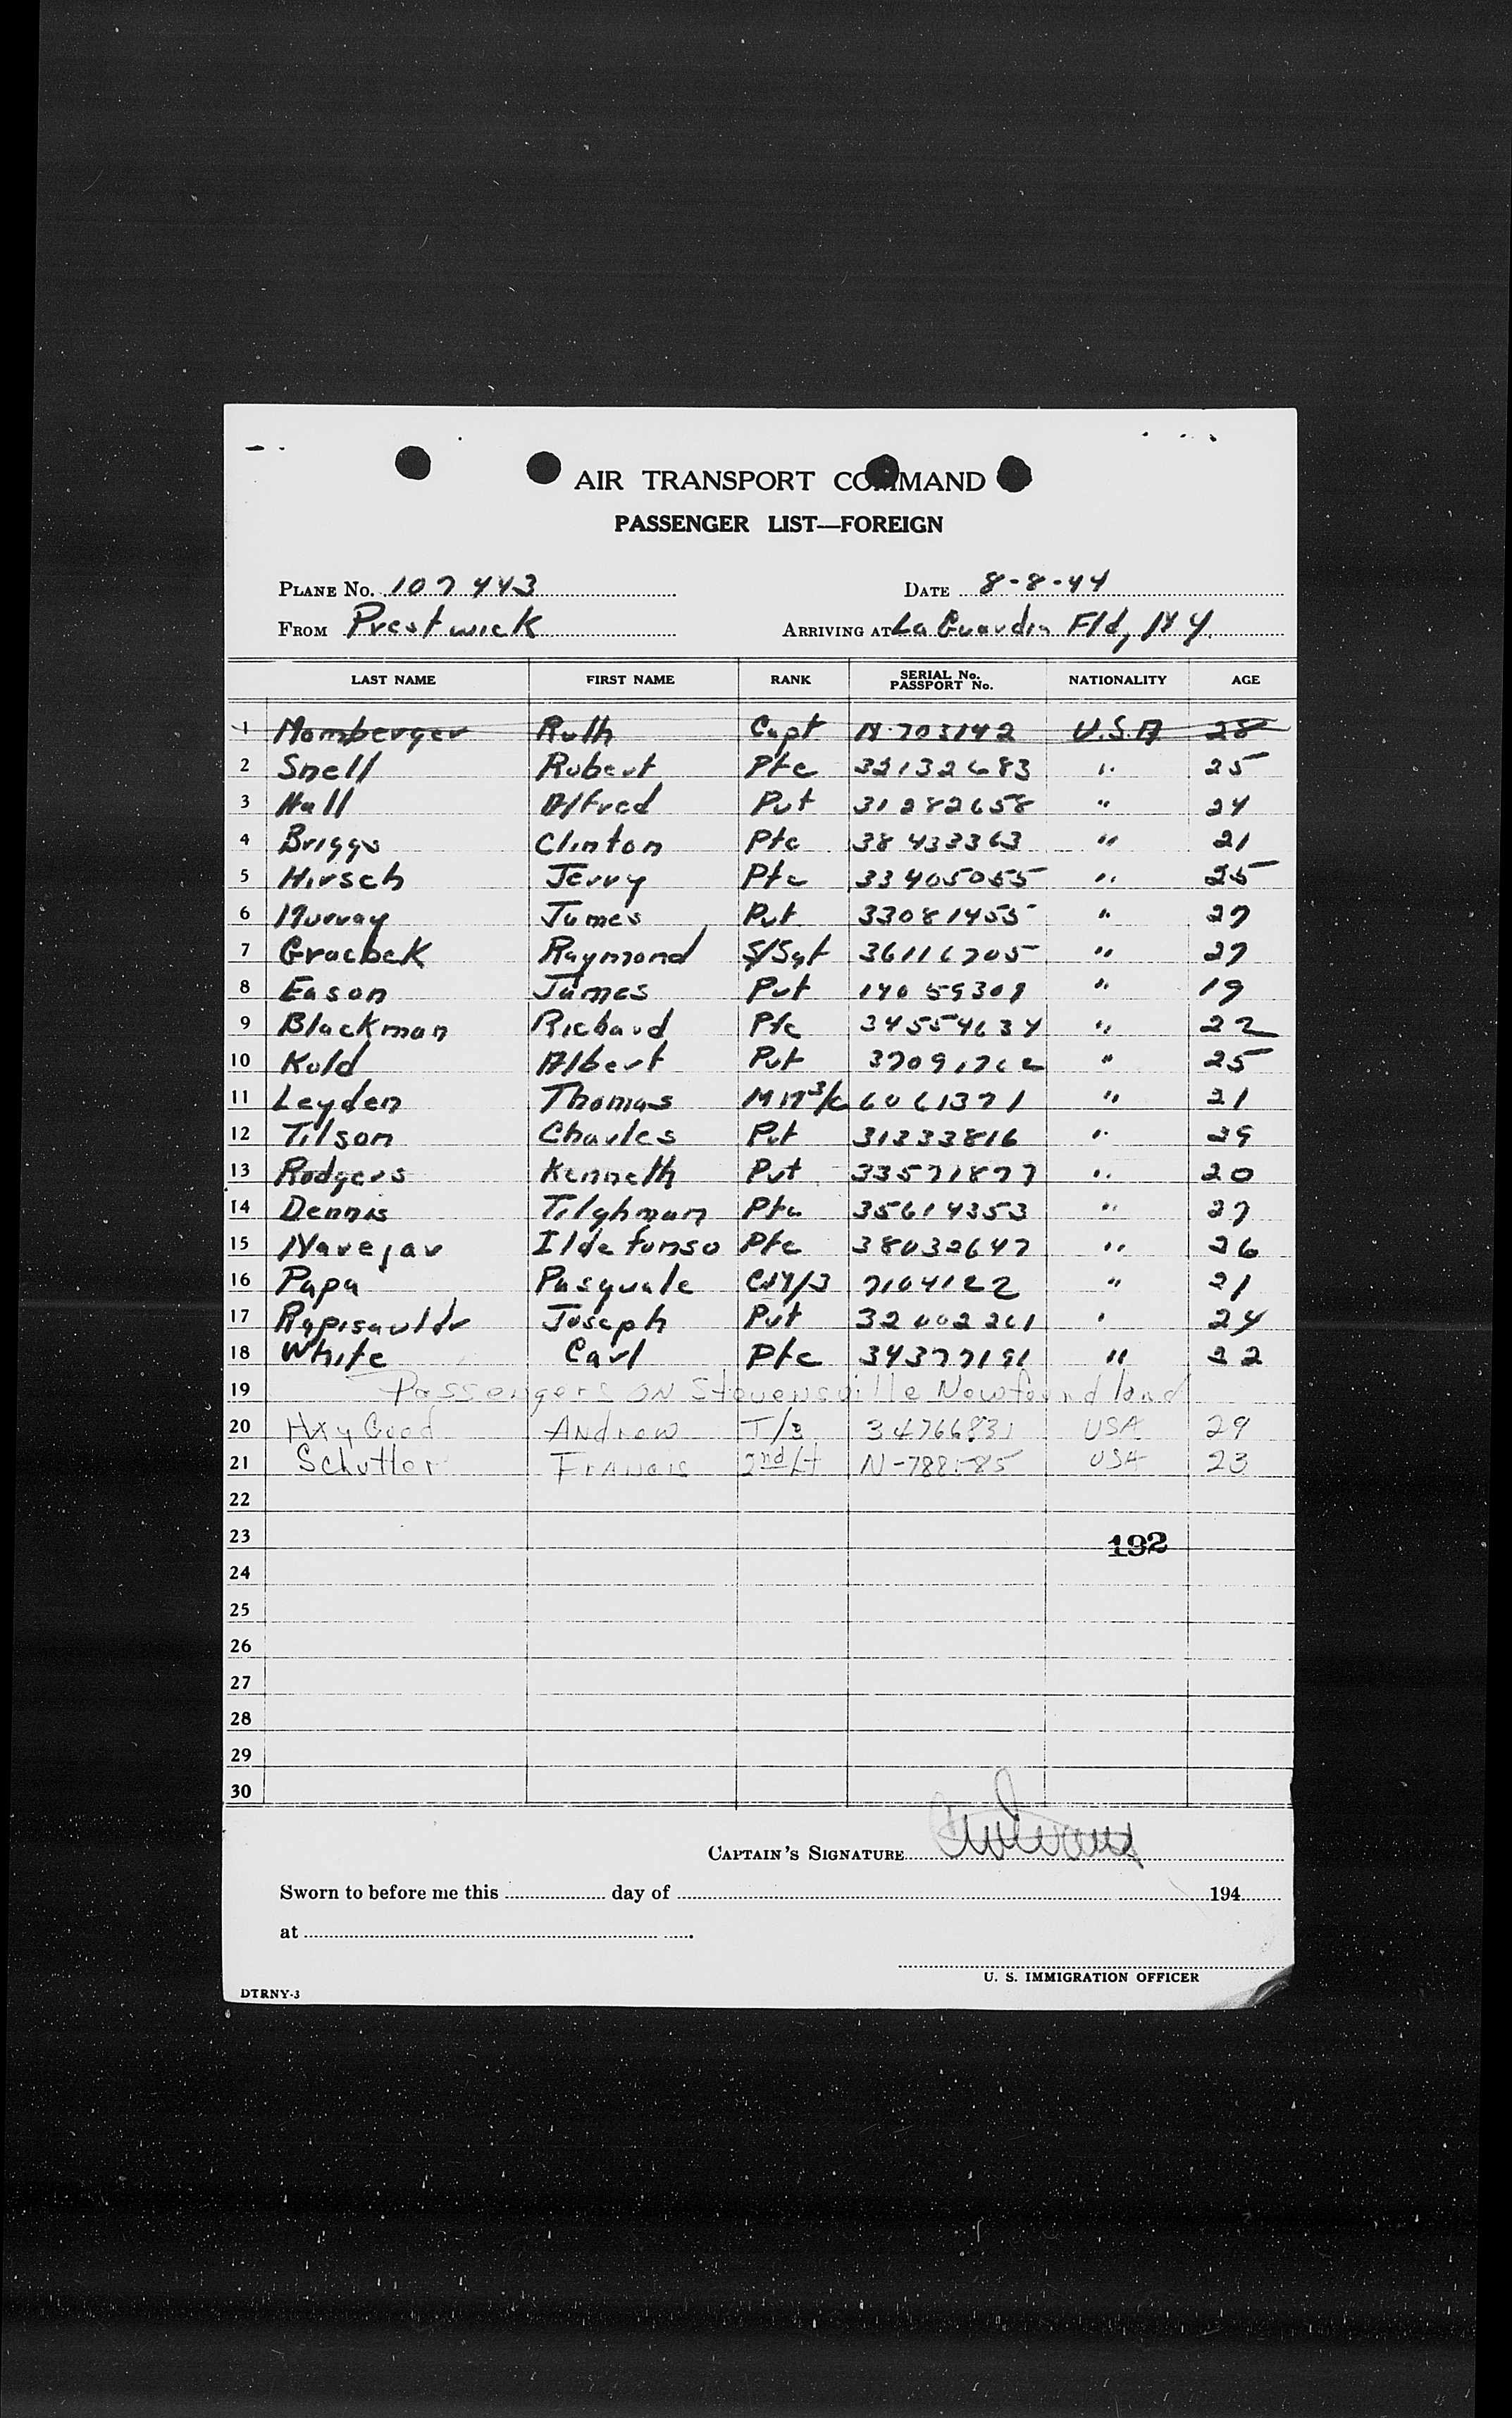 AIR TRANSPORT COMMAND
PASSENGER LIST—FOREIGN
PLANE No. 107443 DATE 8-8-44
FROM Prestwick ARRIVING AT La Guardia Fld, NY.
LAST NAME FIRST NAME RANK SERIAL No. PASSPORT No. NATIONALITY AGE
1 Momberger Ruth Capt N-703142 U.S.A 28
2 Snell Robert Pfc 32132683 " 25
3 Hall Alfred Pvt 31282658 " 24
4 Briggs Clinton Pfc 38433363 " 21
5 Hirsch Jerry Pfc 33405055 " 25
6 Murray James Pvt 33081455 " 27
7 Graebek Raymond S/Sgt 36116705 " 27
8 Eason James Pvt 14059309 " 19
9 Blackman Richard Pfc 34554634 " 22
10 Kuld Albert Pvt " 25
11 Leyden Thomas MM3/c 6061371 " 21
12 Tilson Charles Pvt 31233816 " 29
13 Rodgers Kenneth Pvt 33571877 " 20
14 Dennis Tilghman Pfc 35614353 " 27
15 Navejar Ildefonso Pfc 38032647 " 26
16 Papa Pasquale 7104122 " 21
17 Joseph Pvt " 24
18 White Carl Pfc 34377191 " 22
19 Passengers ON Stevensville Newfoundland
20 HayGood Andrew T/3 34766831 USA 29
21 Schutter Francis 2nd/Lt N-788585 USA 23
22
23 192
24
25
26
27
28
29
30
CAPTAIN'S SIGNATURE
Sworn to before me this day of 194
at
U. S. IMMIGRATION OFFICER
DTRNY-3